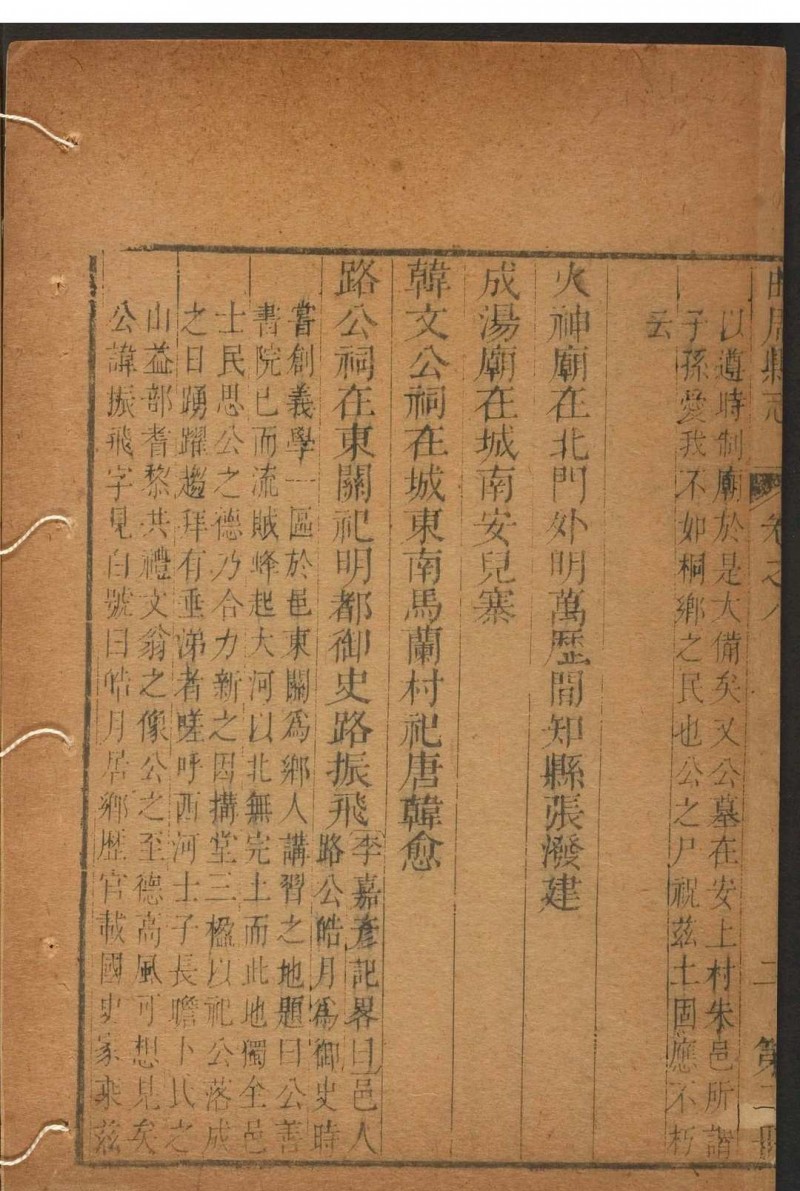 曲周縣志 卷之八 二 第二冊
以遵時制廟於是大備矣又公墓在安上村朱邑所謂
子孫愛我不如桐鄉之民也公之尸祝茲土固應不朽
云
火神廟在北門外明萬歷間知縣張潑建
成湯廟在城南安兒寨
韓文公祠在城東南馬蘭村祀唐韓愈
路公祠在東關祀明都御史路振飛李嘉彥記畧曰邑人
路公皓月爲御史時
嘗創義學一區於邑東關爲鄉人講習之地題曰公善
書院已而流賊蜂起大河以北無完土而此地獨全邑
士民思公之德乃合力新之因搆堂三楹以祀公落成
之日踴躍趨拜有垂涕者嗟呼西河士子長瞻卜氏之
山益部耆黎共禮文翁之像公之至德高風可想見矣
公諱振飛字見白號曰皓月居鄉歷官載國史家乘茲